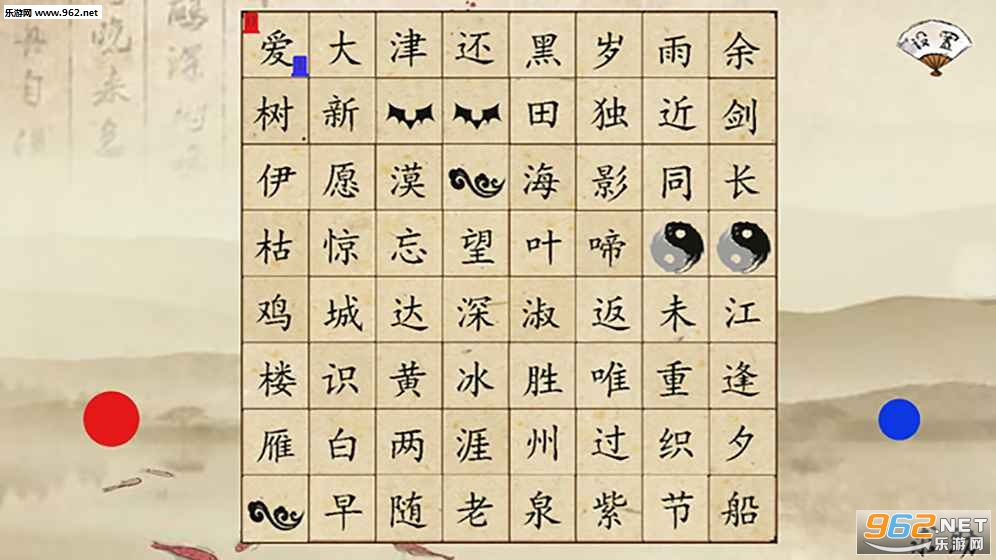 乐游网 www.962.net
设置
爱大津还黑岁雨余
树新田独近剑
伊愿漠海影同长
枯惊忘望叶啼
鸡城达深淑返未江
楼识黄冰胜唯重逢
雁白两涯州过织夕
早随老泉紫节船
962.NET
乐游网